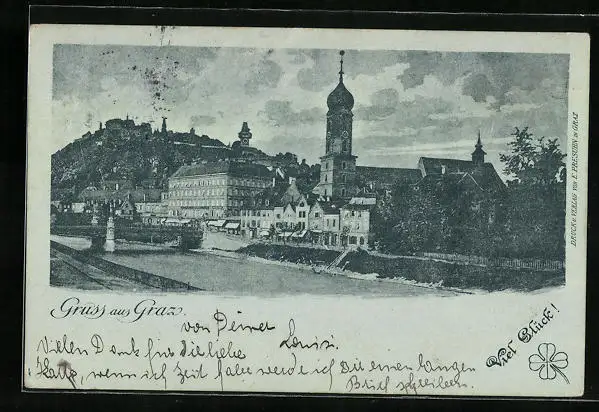 DRUCK u. VERLAG VON E. PRESUHN IN GRAZ
Gruss aus Graz.
von Deiner Louisi.
Viel Glück!
Vielen Dank für die liebe
Karte, wenn ich Zeit habe werde ich Dir einen langen
Brief schreiben.